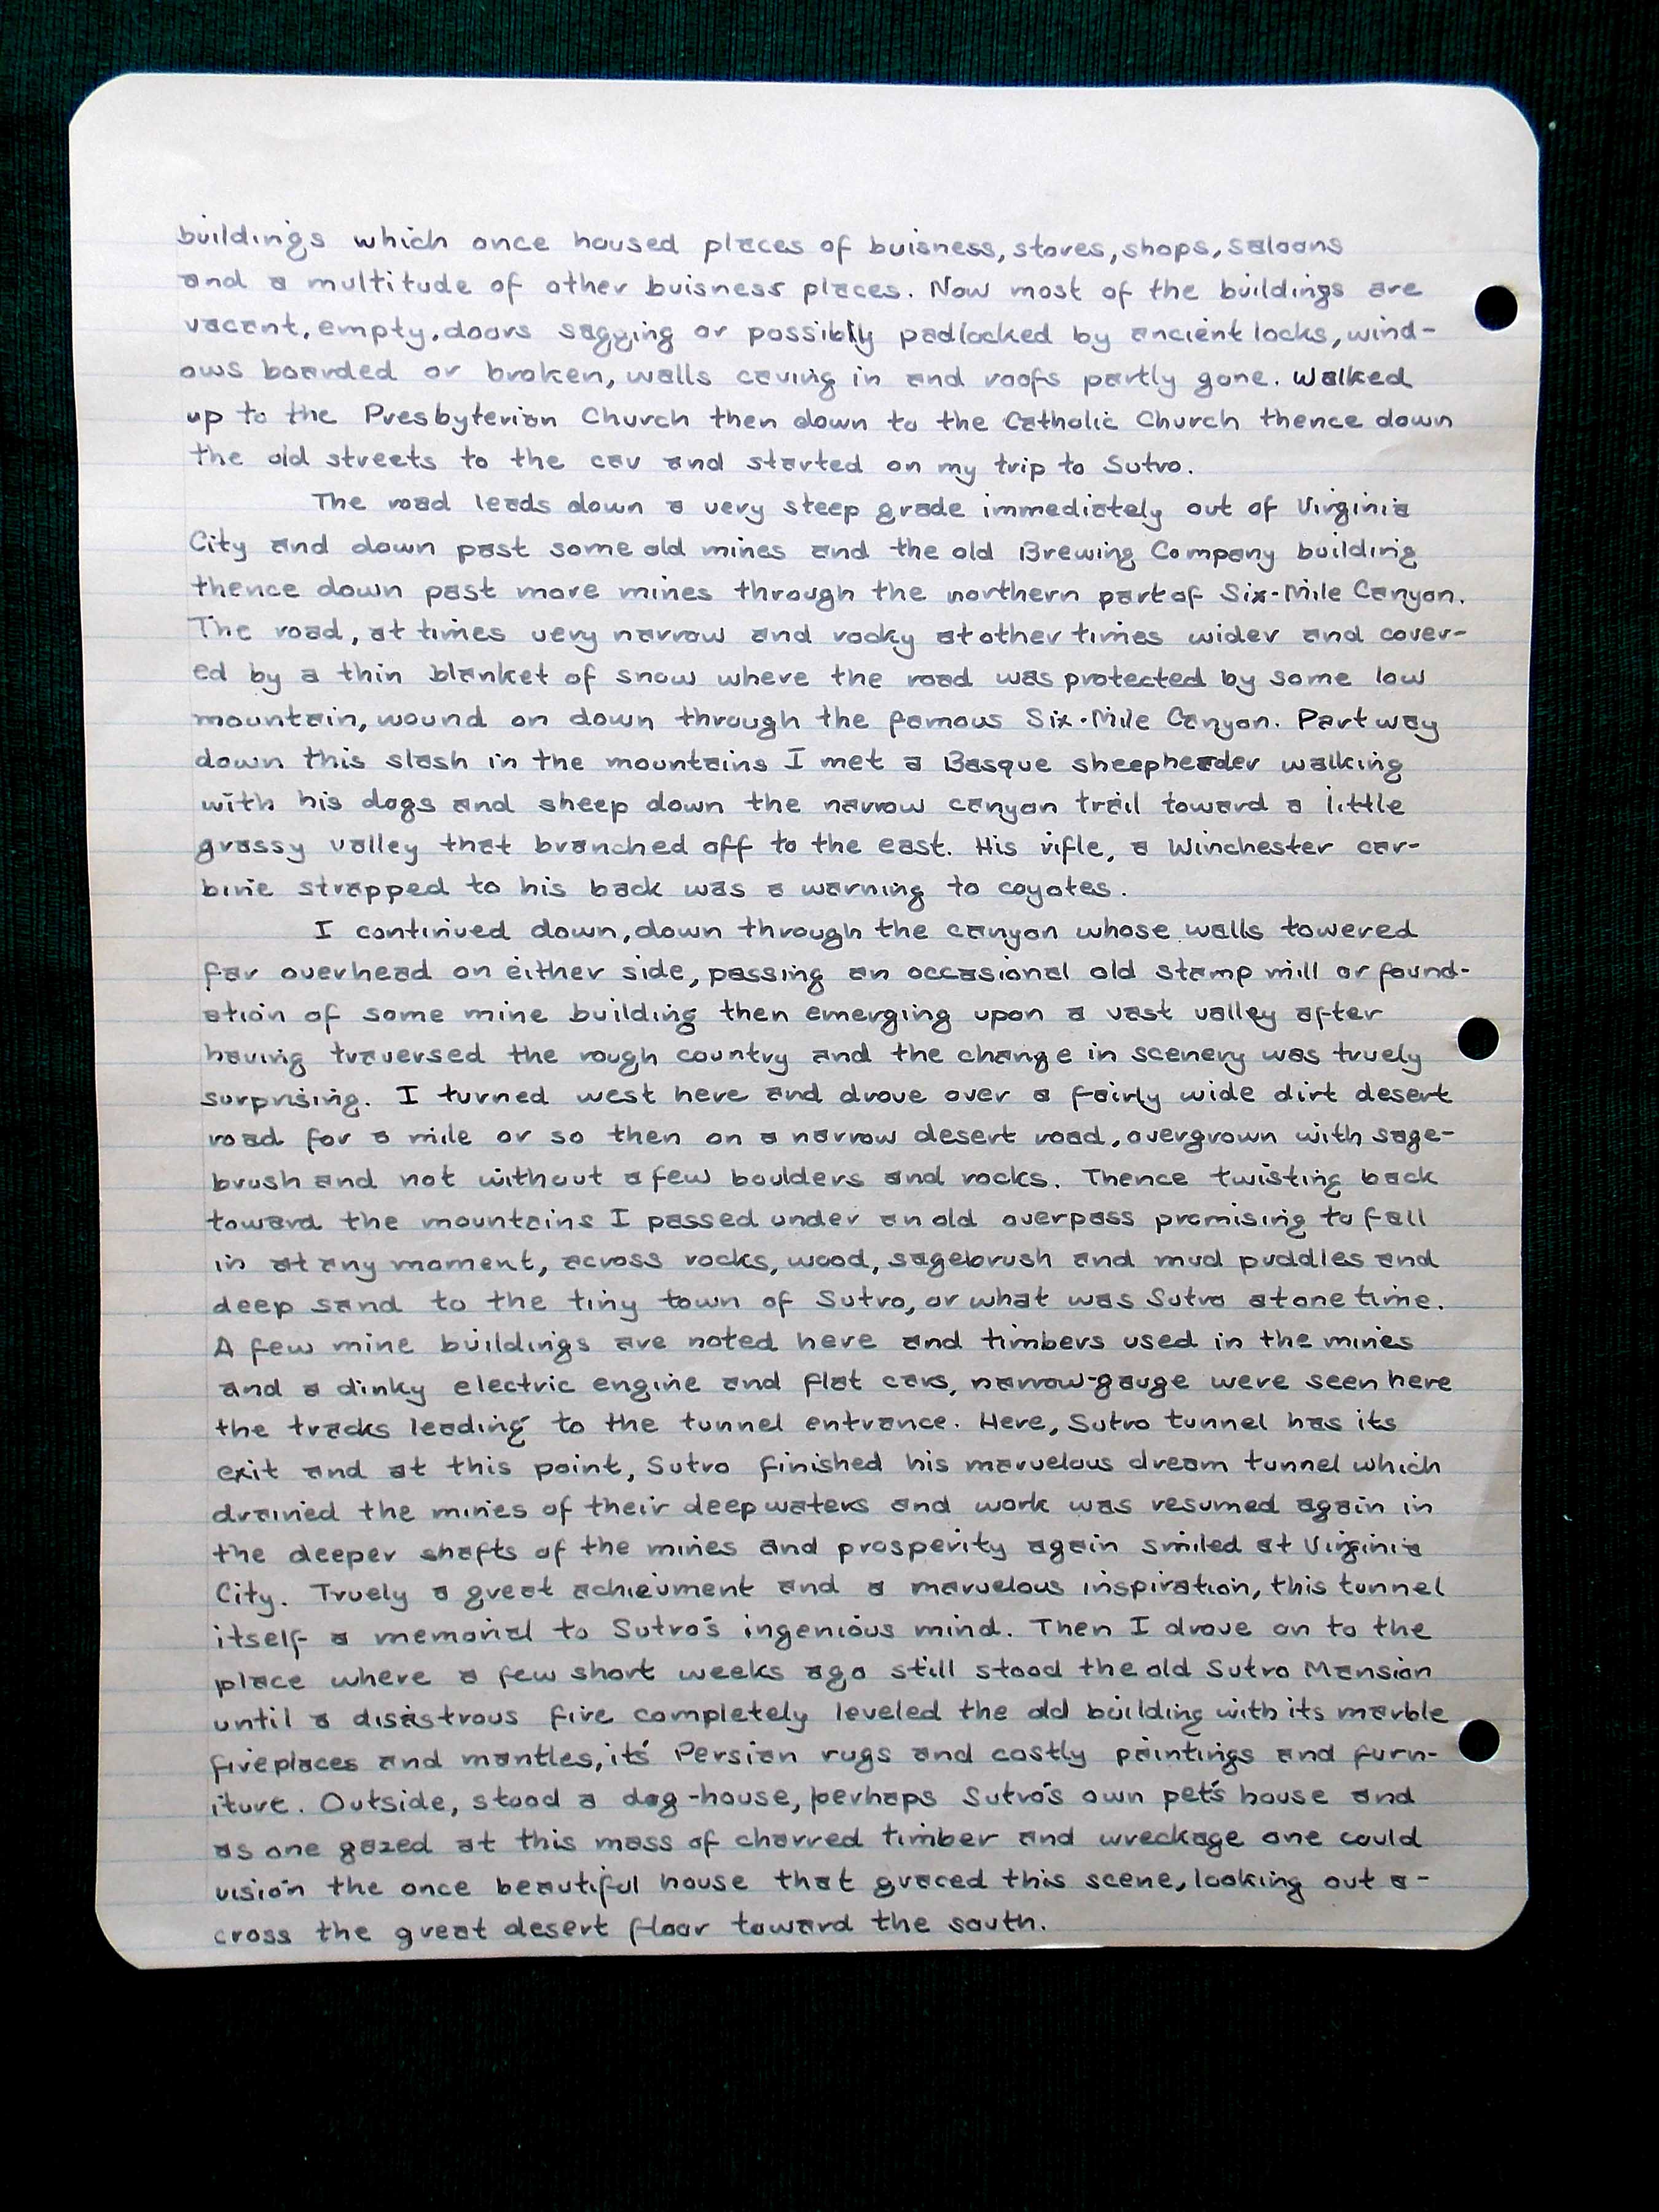 buildings which once housed places of buisness, stores, shops, saloons
and a multitude of other buisness places. Now most of the buildings are
vacant, empty, doors sagging or possibly padlocked by ancient locks, wind-
ows boarded or broken, walls caving in and roofs partly gone. Walked
up to the Presbyterian Church then down to the Catholic Church thence down
the old streets to the car and started on my trip to Sutro.
The road leads down a very steep grade immediately out of Virginia
City and down past some old mines and the old Brewing Company building
thence down past more mines through the northern part of Six-Mile Canyon.
The road, at times very narrow and rocky at other times wider and cover-
ed by a thin blanket of snow where the road was protected by some low
mountain, wound on down through the famous Six-Mile Canyon. Part way
down this slash in the mountains I met a Basque sheepherder walking
with his dogs and sheep down the narrow canyon trail toward a little
grassy valley that branched off to the east. His rifle, a Winchester car-
bine strapped to his back was a warning to coyotes.
I continued down, down through the canyon whose walls towered
far overhead on either side, passing an occasional old stamp mill or found-
ation of some mine building then emerging upon a vast valley after
having traversed the rough country and the change in scenery was truely
surprising. I turned west here and drove over a fairly wide dirt desert
road for a mile or so then on a narrow desert road, overgrown with sage-
brush and not without a few boulders and rocks. Thence twisting back
toward the mountains I passed under an old overpass promising to fall
in at any moment, across rocks, wood, sagebrush and mud puddles and
deep sand to the tiny town of Sutro, or what was Sutro at one time.
A few mine buildings are noted here and timbers used in the mines
and a dinky electric engine and flat cars, narrow-gauge were seen here
the tracks leading to the tunnel entrance. Here, Sutro tunnel has its
exit and at this point, Sutro finished his marvelous dream tunnel which
drained the mines of their deep waters and work was resumed again in
the deeper shafts of the mines and prosperity again smiled at Virginia
City. Truely a great achievment and a marvelous inspiration, this tunnel
itself a memorial to Sutro's ingenious mind. Then I drove on to the
place where a few short weeks ago still stood the old Sutro Mansion
until a disastrous fire completely leveled the old building with its marble
fireplaces and mantles, it's Persian rugs and costly paintings and furn-
iture. Outside, stood a dog-house, perhaps Sutro's own pet's house and
as one gazed at this mass of charred timber and wreckage one could
vision the once beautiful house that graced this scene, looking out a-
cross the great desert floor toward the south.